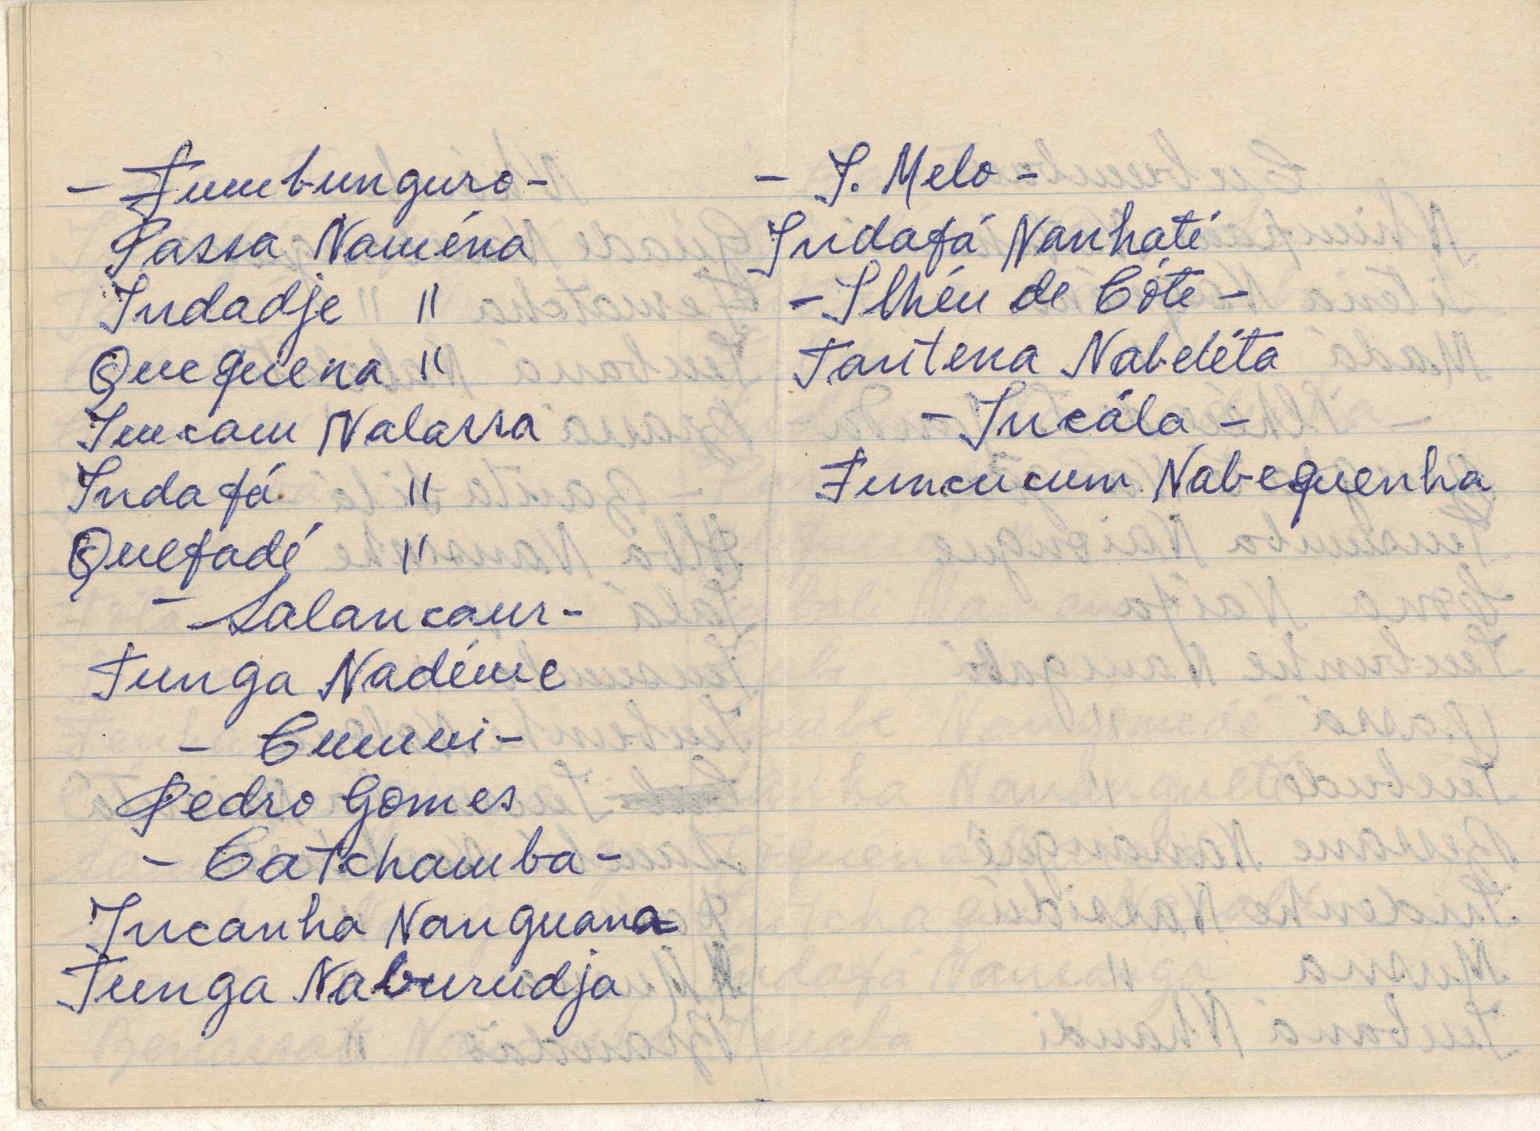 - Fumbunguro -
Passa Naména
Indadje "
Quequena "
Imcam Nalassa
Indafá "
Quefadé "
- Salancaur -
Funga Nadéme
- Cumui -
Pedro Gomes
- Catchamba -
Incanha Nanguana
Funga Naburudja
- I. Melo -
Indafá Nanhaté
- Ilhéu de Cóte -
Tantena Nabeléta
- Incála -
Funcucum Nabequenha